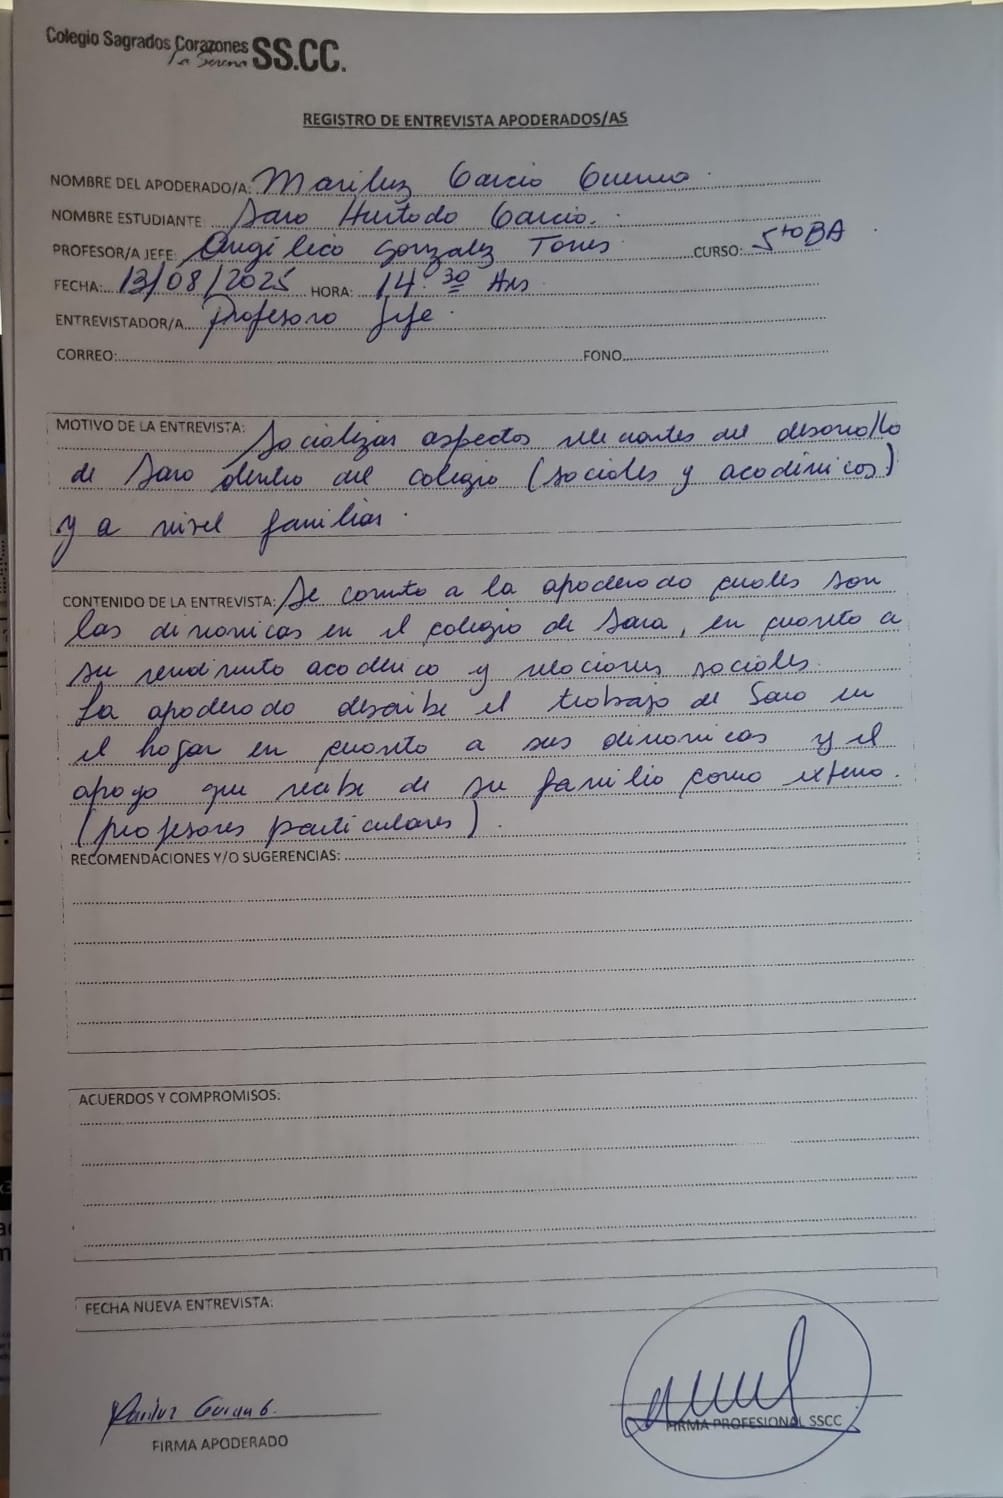 Colegio Sagrados Corazones SS.CC.
La Serena
REGISTRO DE ENTREVISTA APODERADOS/AS
NOMBRE DEL APODERADO/A: Mariluz Garcia Guerra
NOMBRE ESTUDIANTE: Sara Hurtado Garcia.
PROFESOR/A JEFE: Angelica Gonzalez Torres CURSO: 5to BA
FECHA: 13/08/2025 HORA: 14:30 Hrs
ENTREVISTADOR/A Profesora Jefe.
CORREO: FONO
MOTIVO DE LA ENTREVISTA: Socializar aspectos relevantes del desarrollo
de Sara dentro del colegio (sociales y académicos)
y a nivel familiar.
CONTENIDO DE LA ENTREVISTA: Se comenta a la apoderada cuales son
las dinamicas en el colegio de Sara, en cuanto a
su rendimiento academico y relaciones sociales.
La apoderada describe el trabajo de Sara en
el hogar en cuanto a sus dinamicas y el
apoyo que recibe de su familia como externo.
(profesores particulares).
RECOMENDACIONES Y/O SUGERENCIAS:
ACUERDOS Y COMPROMISOS:
FECHA NUEVA ENTREVISTA:
Mariluz Garcia G.
FIRMA APODERADO
FIRMA PROFESIONAL SSCC